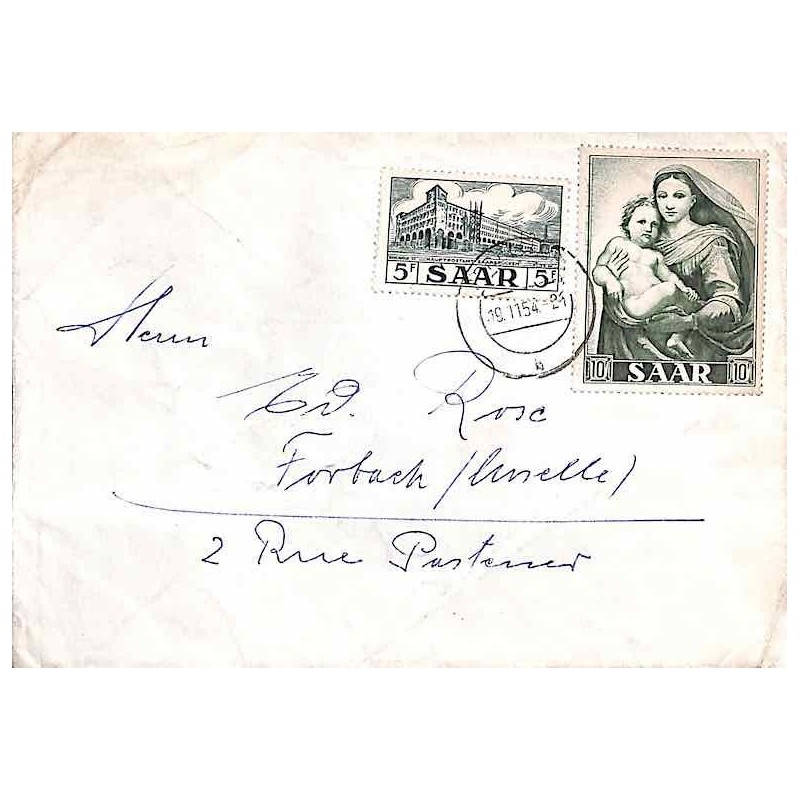 5F SAAR 5F
HAUPTPOSTAMT SAARBRÜCKEN
10F SAAR 10F
19.1154.-21
b
Herrn
Ed. Rose
Forbach (Moselle)
2 Rue